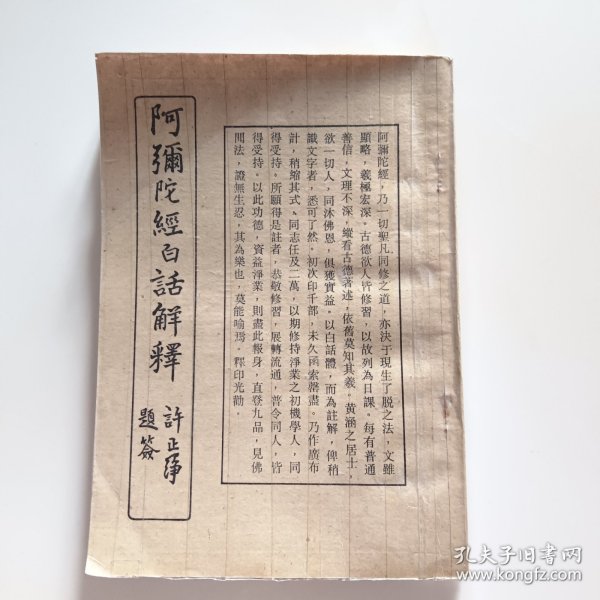 阿彌陀經白話解釋
許正綬
題簽
阿彌陀經，乃一切聖凡同修之道，亦決于現生了脱之法，文雖
顯略，義極宏深。古德欲人皆修習，以故列為日課。每有普通
善信，文理不深，縱看古德著述，依舊莫知其義。黃涵之居士，
欲一切人，同沐佛恩，俱獲實益。以白話體，而為註解，俾稍
識文字者，悉可了然。初次印千部，未久函索罄盡。乃作廣布
計，稍縮其式、同志任及二萬，以期修持淨業之初機學人，同
得受持。所願得是註者，恭敬修習，展轉流通，普令同人，皆
得受持。以此功德，資益淨業，則盡此報身，直登九品，見佛
聞法，證無生忍，其為樂也，莫能喻焉。釋印光勸.
孔夫子旧书网
www.kongfz.com